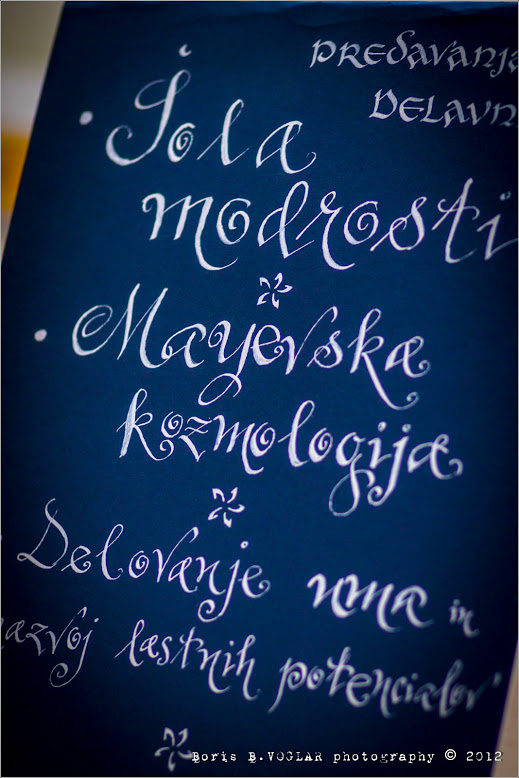 PREDAVANJA
DELAVN
• Šola
modrosti
• Mayevska
kozmologija
Delovanje uma in
razvoj lastnih potencialov
Boris B.VOGLAR photography © 2012